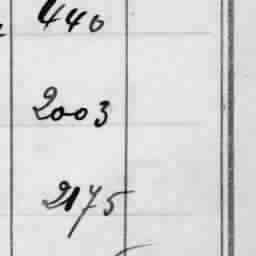 440
2003
2175